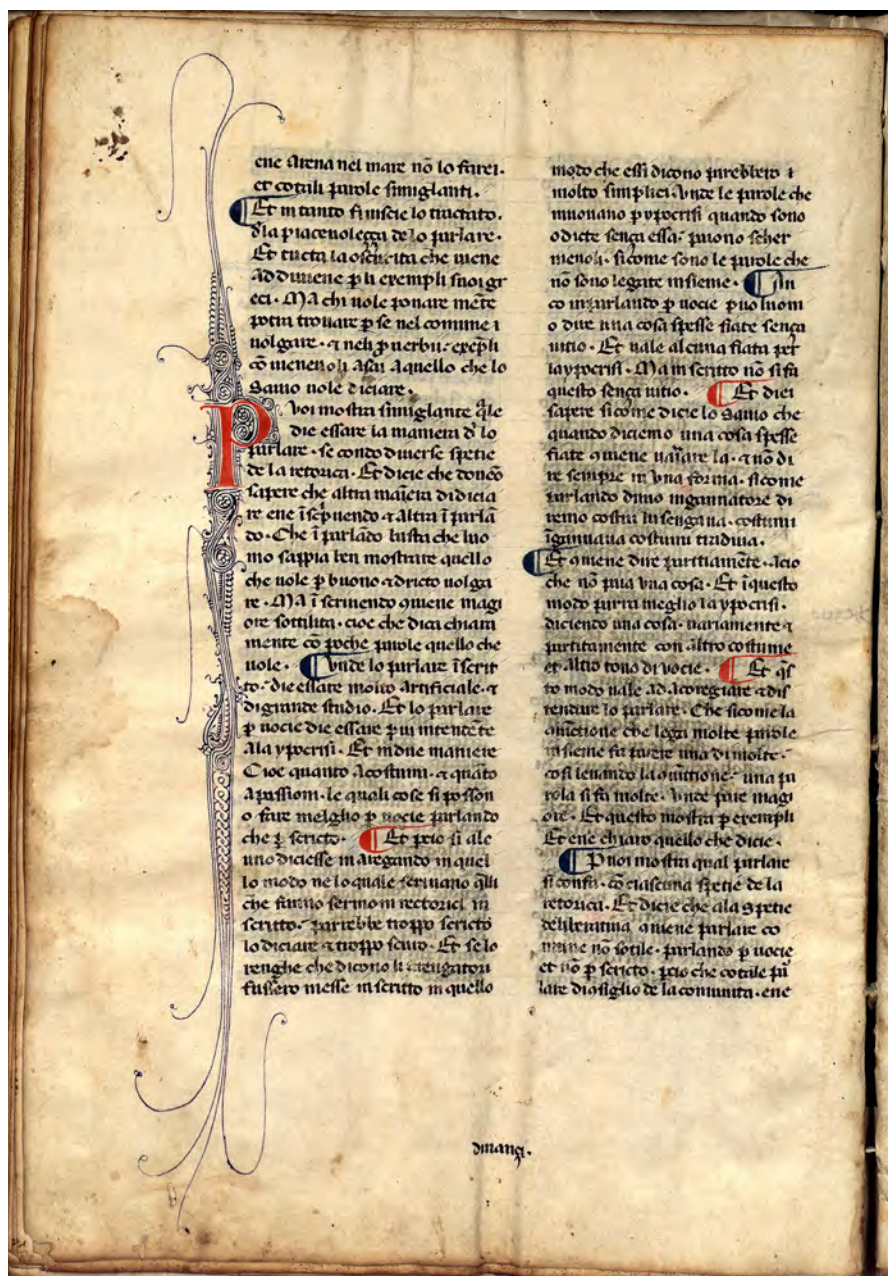 ene arena nel mare nō lo farei.
et cotali parole simiglanti.
¶ Et in tanto finiscie lo tractato.
d'la piacevoleçça de lo parlare.
Et tucta la oscurita che viene
advviene ꝑ li exempli suoi gr
eci. Ma chi vole ponare mēte
potra trovare ꝑ se nel comune i
volgare. ⁊ neli ꝓverbii exēpli
cōvenevoli asai a quello che lo
Savio vole diciare.
Poi mostra simiglante q̄le
die essare la maniera d' lo
parlare. secondo diverse spetie
de la retorica. Et dicie che donēo
sapere che altra maīera di dicia
re ene ī scꝑvendo ⁊ altra ī parlā
do. Che ī parlādo basta che luo
mo sappia ben mostrare quello
che vole ꝑ buono ⁊ dricto volga
re. Ma ī scrivendo ꝯviene magi
ore sottilita. cioe che dica chiara
mente cō poche parole quello che
vole. ¶ Unde lo parlare ī scrit
to. die essare molto artificiale. ⁊
di grande studio. Et lo parlare
ꝑ vocie die essare ꝑ vi intendēte
ala ypocrisi. Et in due maniere
Cioe quanto a costumi. ⁊ quāto
a passioni. le quali cose si posson
o fare melglio ꝑ vocie parlando
che ꝑ scricto. ¶ Et ꝑcio si alc
uno diciesse in aregando in quel
lo modo ne lo quale scrivano q̄lli
che fanno sermoni rectorici in
scritto. parrebbe troppo scricto
lo diciare ⁊ troppo scuro. Et se lo
renghe che dicono li arengatori
fussero messe in scritto in quello
modo che essi dicono parebbero i
molto simplici. Unde le parole che
muovano ꝑ ypocrisi quando sono
o dicte sença essa. paiono scher
nevoli. sicome sono le parole che
nō sono legate insieme. ¶ An
co in parlando ꝑ vocie puo luom
o dire una cosa spesse fiate sença
vitio. Et vale alcuna fiata per
la ypocrisi. Ma in scritto nō si fa
questo sença vitio. ¶ Et diei
sapere sicome dicie lo savio che
quando diciemo una cosa spesse
fiate ꝯviene variare la. ⁊ nō di
re sempre in una forma. sicome
parlando d'uno ingannatore di
remo costui lusengava. costui
īgannava costui tradiva.
¶ Et ꝯviene dire partitamēte. acio
che nō paia una cosa. Et ī questo
modo parra meglio la ypocrisi.
diciendo una cosa. variamente ⁊
partitamente con altro costume
et altro tono di vocie. ¶ Et q̄s
to modo vale ad acoregiare ⁊ dis
tendare lo parlare. Che sicome la
ꝯiūctione che lega molte parole
insieme fa parere una di molte.
cosi levando la ꝯiūctione. una pa
rola si fa molte. Unde pare magi
ore. Et questo mostra ꝑ exempli
Et ene chiaro quello che dicie.
¶ Puoi mostra qual parlare
si confa. cō ciascuna spetie de la
retorica. Et dicie che ala spetie
deliberativa ꝯviene parlare co
mune nō sotile. parlando ꝑ vocie
et nō ꝑ scricto. ꝑcio che cotale pā
lare di ꝯsiglio de la comunita. ene
dinançi.